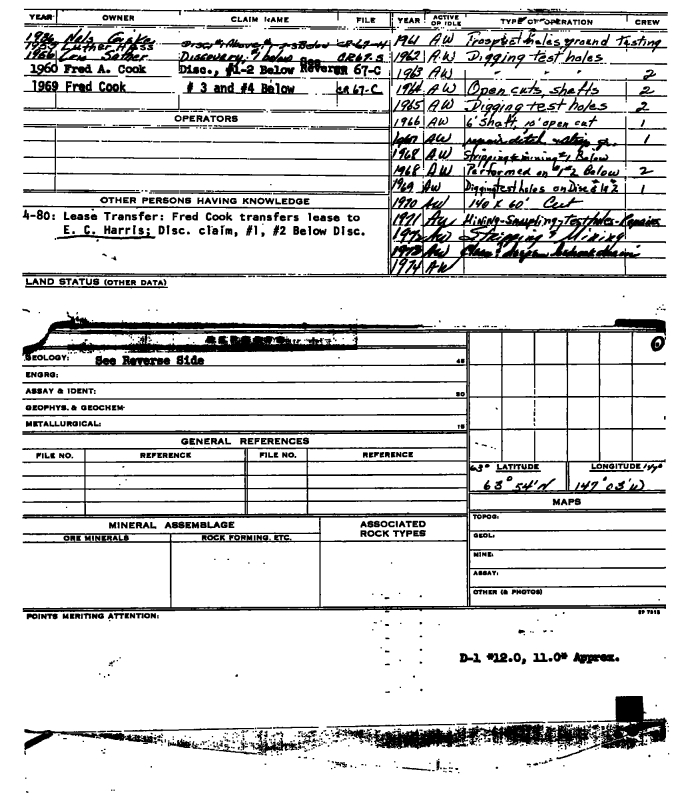 YEAR OWNER CLAIM NAME FILE
1957 Luther Hess
1960 Fred A. Cook Disc., #1-2 Below 67-C
1969 Fred Cook # 3 and #4 Below CR 67-C
OPERATORS
OTHER PERSONS HAVING KNOWLEDGE
4-80: Lease Transfer: Fred Cook transfers lease to
E. C. Harris; Disc. claim, #1, #2 Below Disc.
YEAR ACTIVE OF IDLE TYPE OF OPERATION CREW
1961 AW Prospect holes ground Testing
1962 AW Digging test holes
1963 AW " " " 2
1964 AW Open cuts, shafts 2
1965 AW Digging test holes 2
1966 AW 6' Shaft, 10' open cut 1
1967 AW repair ditch 1
1968 AW Stripping & mining #1 Below
1968 AW Performed on #1 #2 Below 2
1969 AW Digging test holes on Disc & 1 & 2 1
1970 AW 140 X 60' Cut
1971 AW Mining-Sampling-Testholes-Repairs
AW Stripping & Mining
1973 AW
1974 AW
LAND STATUS (OTHER DATA)
GEOLOGY: See Reverse Side
ENGRG:
ASSAY & IDENT:
GEOPHYS. & GEOCHEM
METALLURGICAL:
GENERAL REFERENCES
FILE NO. REFERENCE FILE NO. REFERENCE
63° LATITUDE LONGITUDE 147°
63° 54' N 147° 03' W
MAPS
TOPOG:
GEOL:
MINE:
ASSAY:
OTHER (& PHOTOS)
MINERAL ASSEMBLAGE ASSOCIATED ROCK TYPES
ORE MINERALS ROCK FORMING, ETC.
POINTS MERITING ATTENTION:
D-1 "12.0, 11.0" Approx.